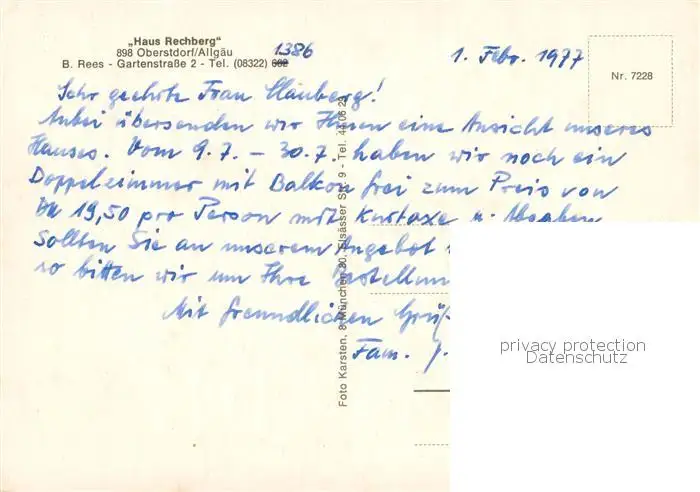 „Haus Rechberg“
898 Oberstdorf/Allgäu
B. Rees - Gartenstraße 2 - Tel. (08322) 682
1386
1. Febr. 1977
Nr. 7228
Sehr geehrte Frau
Anbei übersenden wir Ihnen eine Ansicht unseres
Hauses. Vom 9.7. – 30.7. haben wir noch ein
Doppelzimmer mit Balkon frei zum Preis von
DM 19,50 pro Person mit Kurtaxe u. Abgaben
Sollten Sie an unserem Angebot
so bitten wir um Ihre Bestellun
Mit freundlichen Grüß
Fam. J.
Foto Karsten, 8 München 80, Elsässer Str. 9 - Tel. 44 06 25
privacy protection
Datenschutz